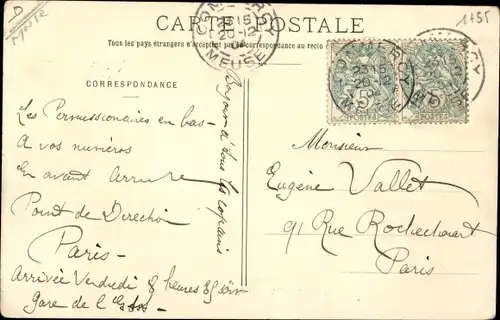 D
MEUSE
1455
CARTE POSTALE
Tous les pays étrangers n'acceptent pas la correspondance au recto
COMMERCY
20-12
MEUSE
5
POSTES
5
POSTES
CORRESPONDANCE
Les Permissionnaires en bas-
A vos numéros
En avant Arrure
Pont de Direction
Paris-
Arrivée Vendredi 8 heures 35 soir
Gare de l'Est
Bonjour à tous les copains
Monsieur
Eugène Vallet
91 Rue Rochechouart
Paris